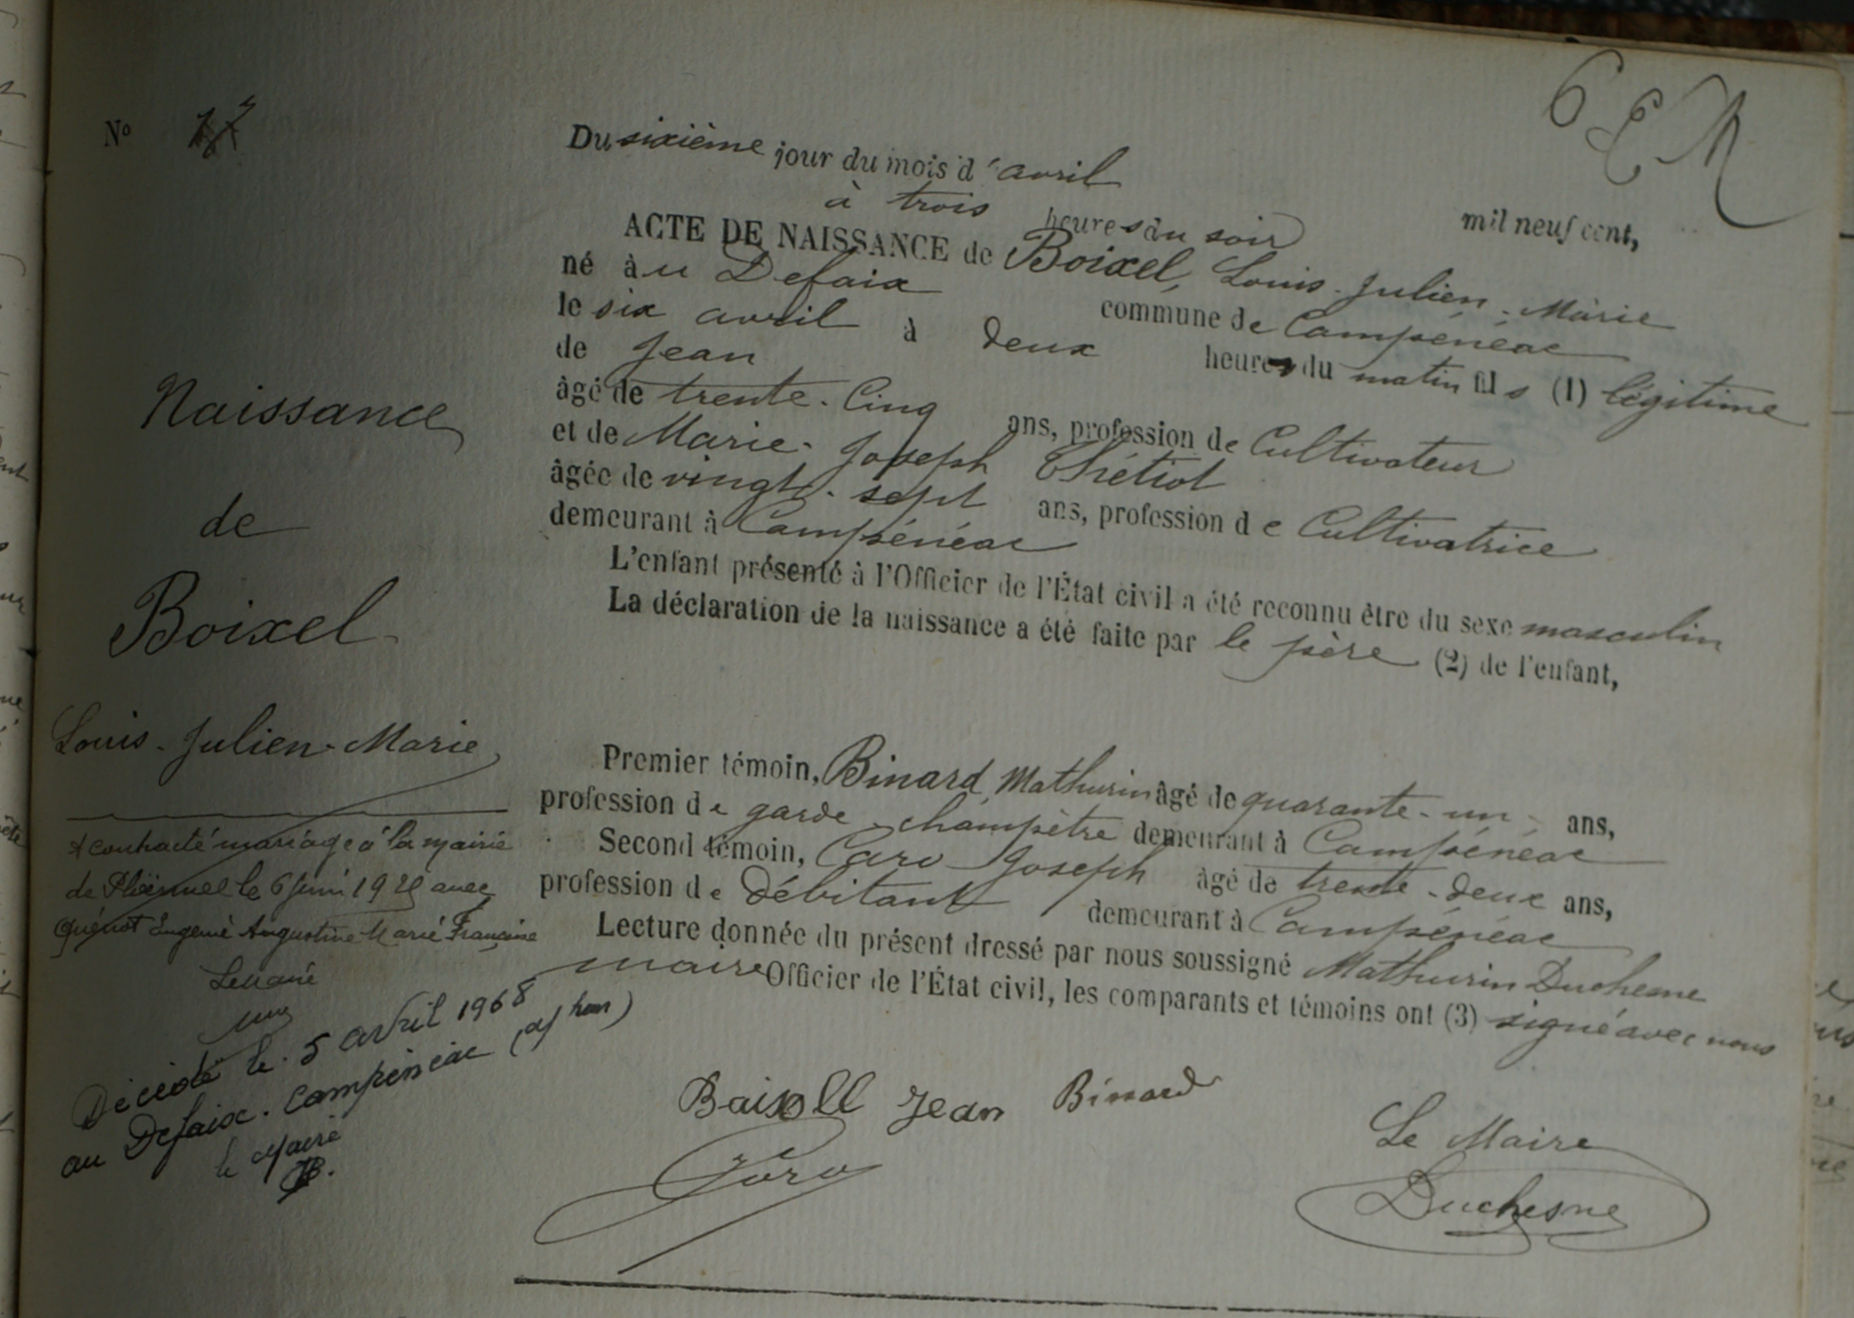 6 E M
N° 17
Du sixième jour du mois d'avril mil neuf cent,
à trois heures du soir
ACTE DE NAISSANCE de Boixel, Louis-Julien-Marie
né à u Defaix commune de Campénéac
le six avril à deux heures du matin fils (1) légitime
de Jean
âgé de trente-cinq ans, profession de Cultivateur
et de Marie-Joseph Thétiot
âgée de vingt-sept ans, profession de Cultivatrice
demeurant à Campénéac
L'enfant présenté à l'Officier de l'État civil a été reconnu être du sexe masculin
La déclaration de la naissance a été faite par le père (2) de l'enfant,
Premier témoin, Binard Mathurin âgé de quarante-un ans,
profession de garde-champêtre demeurant à Campénéac
Second témoin, Caro Joseph âgé de trente-deux ans,
profession de Débitant demeurant à Campénéac
Lecture donnée du présent dressé par nous soussigné Mathurin Duchesne
maire Officier de l'État civil, les comparants et témoins ont (3) signé avec nous
Boixell Jean Binard
Caro
Le Maire
Duchesne
Naissance
de
Boixel
Louis-Julien-Marie
A contracté mariage à la mairie
de Ploërmel le 6 juin 1929 avec
Eugénie Augustine Marie Françoise
Le Maire
Décédé le 5 avril 1968
au Defaix. Campénéac
le Maire